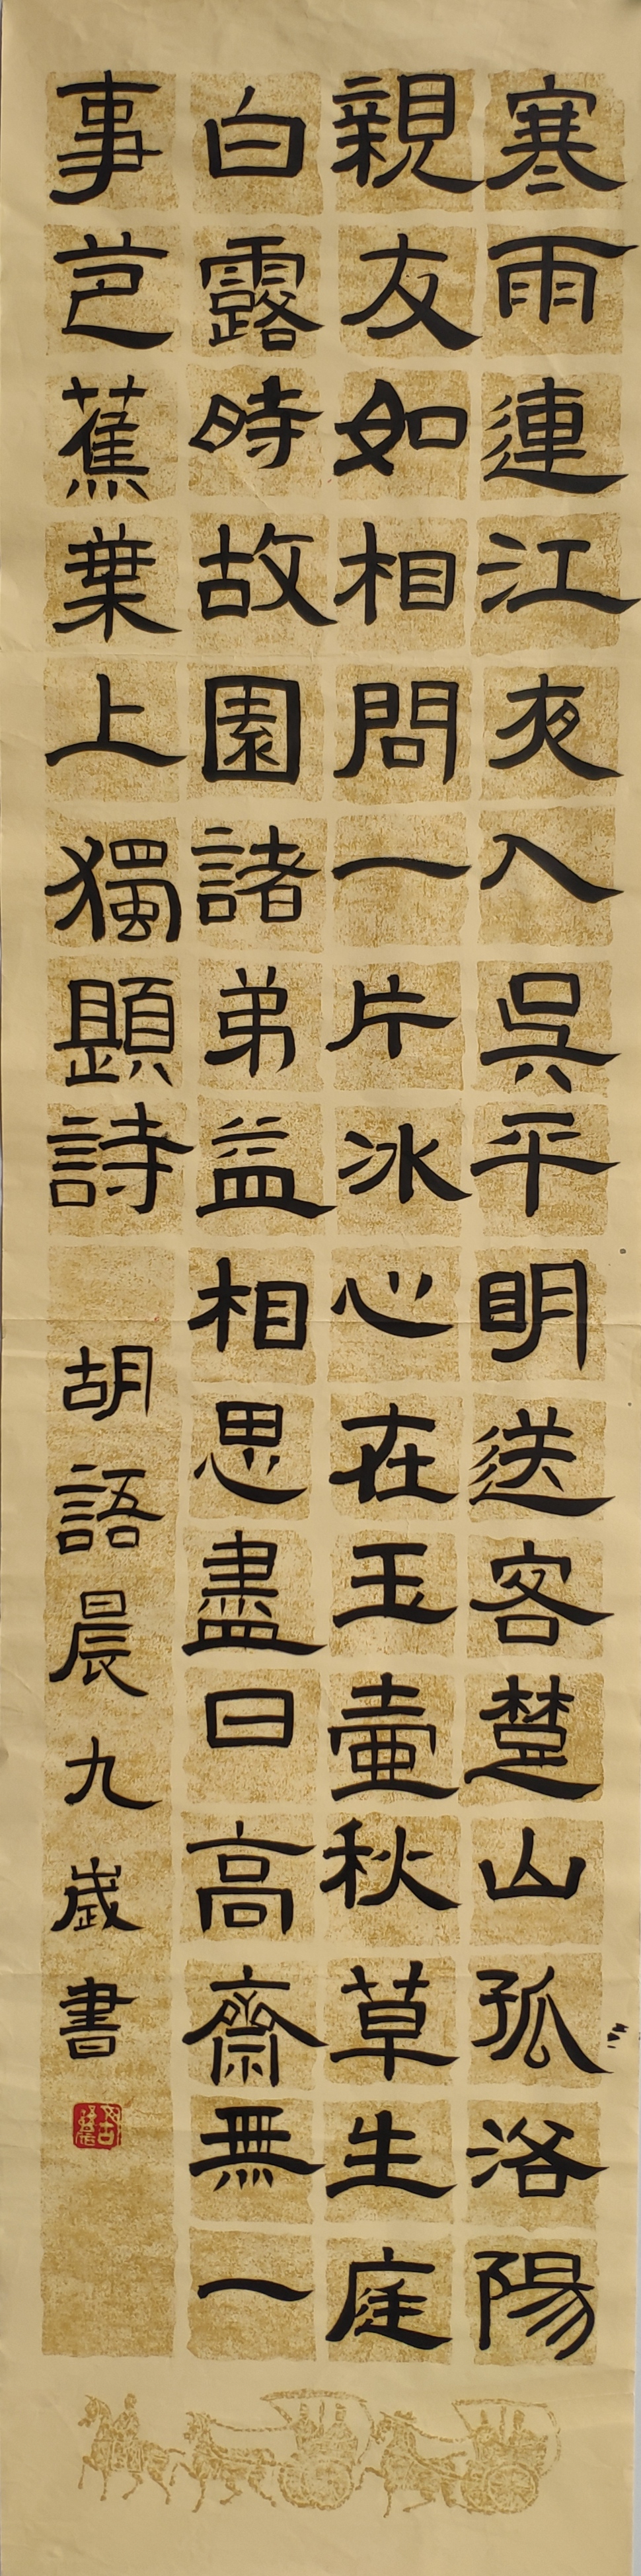 寒雨連江夜入吳平明送客楚山孤洛陽
親友如相問一片冰心在玉壺秋草生庭
白露時故園諸弟益相思盡日高齋無一
事芭蕉葉上獨題詩
胡語晨九歲書